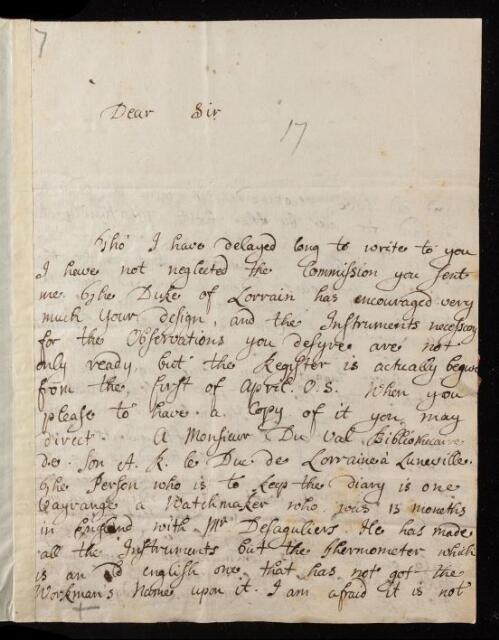 7
Dear Sir
17
Tho' I have delayed long to write to you
I have not neglected the Commission you sent
me. The Duke of Lorrain has encouraged very
much your design, and the Instruments necessary
for the Observations you desyre are not
only ready but the Register is actually begun
from the first of April O.S. When you
please to have a Copy of it you may
direct. A Monsieur Du Val Bibliothecaire
de Son A. R. le Duc de Lorraine à Luneville.
The Person who is to keep the diary is one
Vayrange a Watchmaker who was 13 months
in England with Mr Desaguliers. He has made
all the Instruments but the Thermometer which
is an old english one, that has not got the
Workman's Name upon it. I am afraid it is not